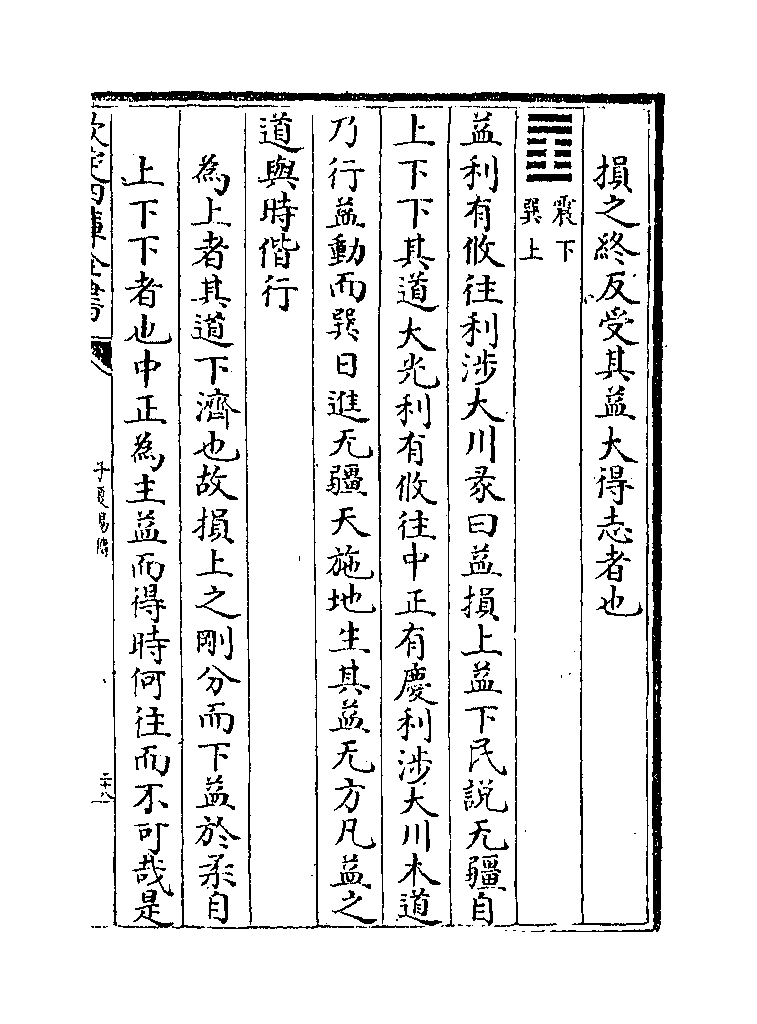 損之終反受其益大得志者也
䷩震下
巽上
益利有攸往利涉大川彖曰益損上益下民說无疆自
上下下其道大光利有攸往中正有慶利涉大川木道
乃行益動而巽日進无疆天施地生其益无方凡益之
道與時偕行
為上者其道下濟也故損上之剛分而下益於柔自
上下下者也中正為主益而得時何往而不可哉是
欽定四庫全書
子夏易傳
二十八